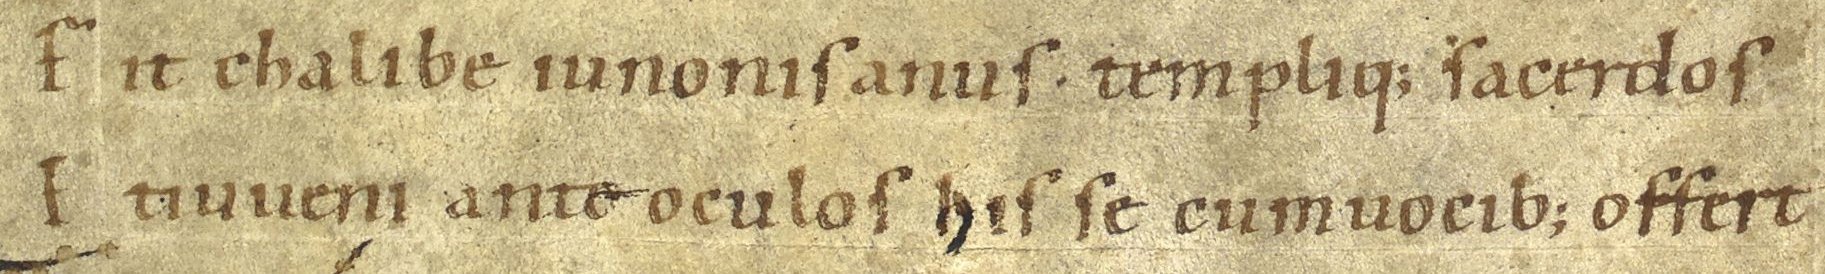 F it chalibe iunonis anus · templiq; sacerdos
E t iuueni ante oculos his se cum uocib; offert